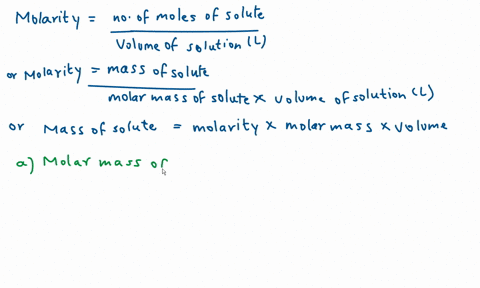 Molarity = no. of moles of solute
Volume of solution (L)
or Molarity = mass of solute
molar mass of solute x volume of solution (L)
or Mass of solute = molarity x molar mass x volume
a) Molar mass of